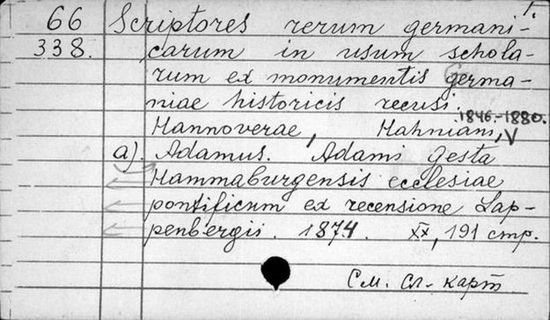 1.
66 Scriptores rerum germani-
338. carum in usum schola-
rum ex monumentis germa-
niae historicis recusi.
1846.-1880.
Hannoverae, Hahniani, V
a) Adamus. Adami gesta
Hammaburgensis ecclesiae
pontificum ex recensione Lap-
penbergii. 1874. XX, 191 стр.
См. сл. карт